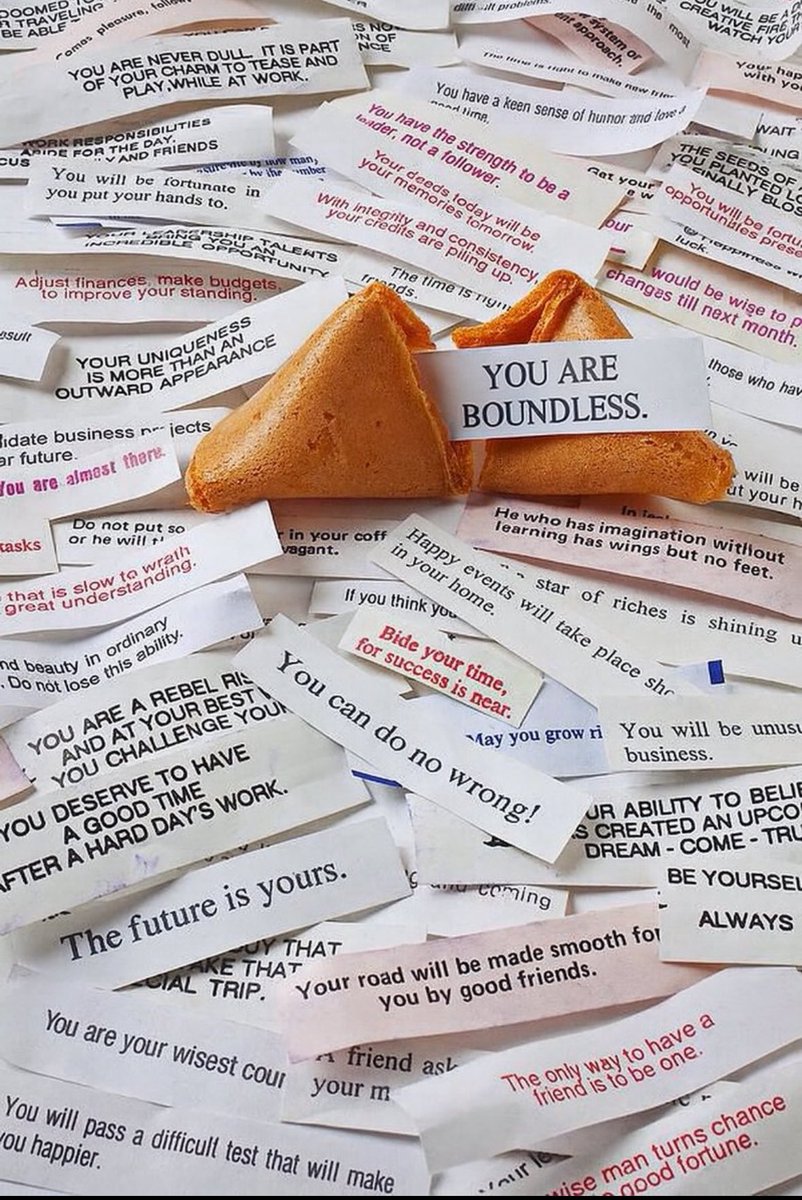 DOOMED TO
TRAVELING
BE ABLE
comes pleasure, follow
difficult problems.
system or
ent approach.
the most
YOU WILL BE A
CREATIVE FIRE
WATCH YOUR
YOU ARE NEVER DULL. IT IS PART
OF YOUR CHARM TO TEASE AND
PLAY WHILE AT WORK.
The time is right to make new frien
Your hap
with you
You have a keen sense of humor and love a
good time.
WORK RESPONSIBILITIES
ASIDE FOR THE DAY,
Y AND FRIENDS
CUS
You have the strength to be a
leader, not a follower.
WAIT
THE SEEDS OF
YOU PLANTED
FINALLY BLOS
You will be fortunate in
you put your hands to.
Your deeds today will be
your memories tomorrow.
Get your
You will be fortu
opportunities prese
With integrity and consistency
your credits are piling up.
our
luck.
YOUR LEADERSHIP TALENTS
YOU AN
INCREDIBLE OPPORTUNITY
The time is righ
friends.
would be wise to p
changes till next month.
Adjust finances, make budgets,
to improve your standing.
esult
YOUR UNIQUENESS
IS MORE THAN AN
OUTWARD APPEARANCE
YOU ARE
BOUNDLESS.
those who hav
idate business projects
ar future.
You are almost there.
will be
ut your h
tasks
Do not put so
or he will
in your coff
vagant.
He who has imagination without
learning has wings but no feet.
that is slow to wrath
great understanding.
Happy events will take place sho
in your home.
star of riches is shining u
If you think you
nd beauty in ordinary
. Do not lose this ability.
Bide your time,
for success is near.
YOU ARE A REBEL RIS
AND AT YOUR BEST
YOU CHALLENGE YOUR
You can do no wrong!
May you grow ri
You will be unusu
business.
YOU DESERVE TO HAVE
A GOOD TIME
AFTER A HARD DAY'S WORK.
UR ABILITY TO BELIE
S CREATED AN UPCO
DREAM - COME - TRU
The future is yours.
coming
BE YOURSEL
ALWAYS
UY THAT
AKE THAT
CIAL TRIP.
Your road will be made smooth for
you by good friends.
You are your wisest coun
A friend ask
your m
The only way to have a
friend is to be one.
You will pass a difficult test that will make
you happier.
wise man turns chance
good fortune.